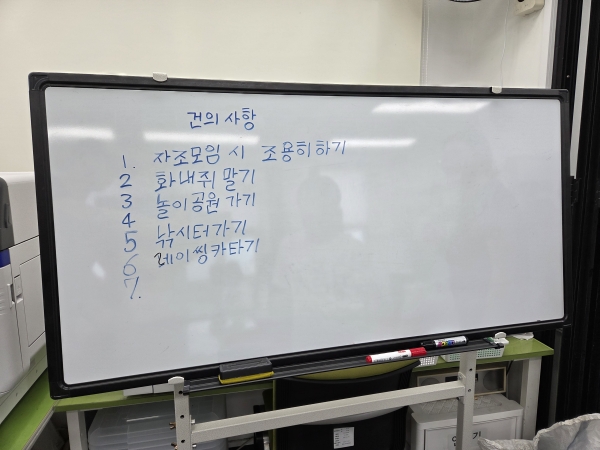 건의 사항
1. 자조모임 시 조용히하기
2 화내쥐 말기
3 놀이공원 가기
4
5 낚시터가기
6 레이씽카타기
7.